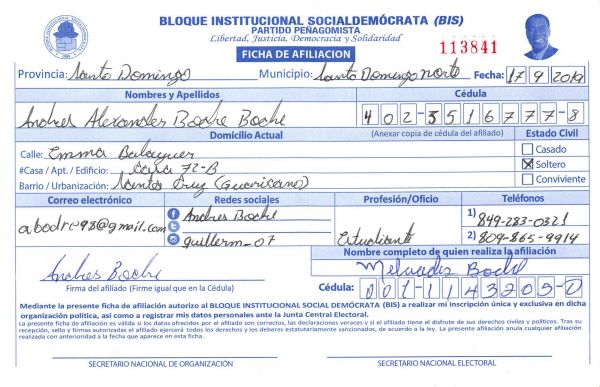 BLOQUE INSTITUCIONAL SOCIALDEMÓCRATA (BIS)
PARTIDO PEÑAGOMISTA
Libertad, Justicia, Democracia y Solidaridad
FICHA DE AFILIACION
113841
Provincia: Santo Domingo Municipio: Santo Domingo norte Fecha: 17 9 2019
Nombres y Apellidos Cédula
Andres Alexander Boche Boche 402-3516777-8
Domicilio Actual (Anexar copia de cédula del afiliado) Estado Civil
Calle: Emma Balaguer Casado
#Casa / Apt. / Edificio: casa 72-B Soltero
Barrio / Urbanización: Santa Cruz (Guaricano) Conviviente
Correo electrónico Redes sociales Profesión/Oficio Teléfonos
abodre98@gmail.com Andres Boche Estudiante 1) 849-283-0321
guillerm_07 2) 809-865-9914
Nombre completo de quien realiza la afiliación
Andres Boche
Firma del afiliado (Firme igual que en la Cédula) Cédula: 001-1143205-0
Mediante la presente ficha de afiliación autorizo al BLOQUE INSTITUCIONAL SOCIAL DEMÓCRATA (BIS) a realizar mi inscripción única y exclusiva en dicha
organización política, así como a registrar mis datos personales ante la Junta Central Electoral.
La presente ficha de afiliación es válida si los datos ofrecidos por el afiliado son correctos, las declaraciones veraces y si el afiliado tiene el disfrute de sus derechos civiles y políticos. Tras su
recepción, sello y firmas autorizadas el afiliado ejercerá todos los derechos y los deberes estatutariamente sancionados, de acuerdo a la ley. La presente afiliación anula cualquier afiliación
realizada con anterioridad a la fecha que aparece en esta ficha.
SECRETARIO NACIONAL DE ORGANIZACIÓN SECRETARIO NACIONAL ELECTORAL